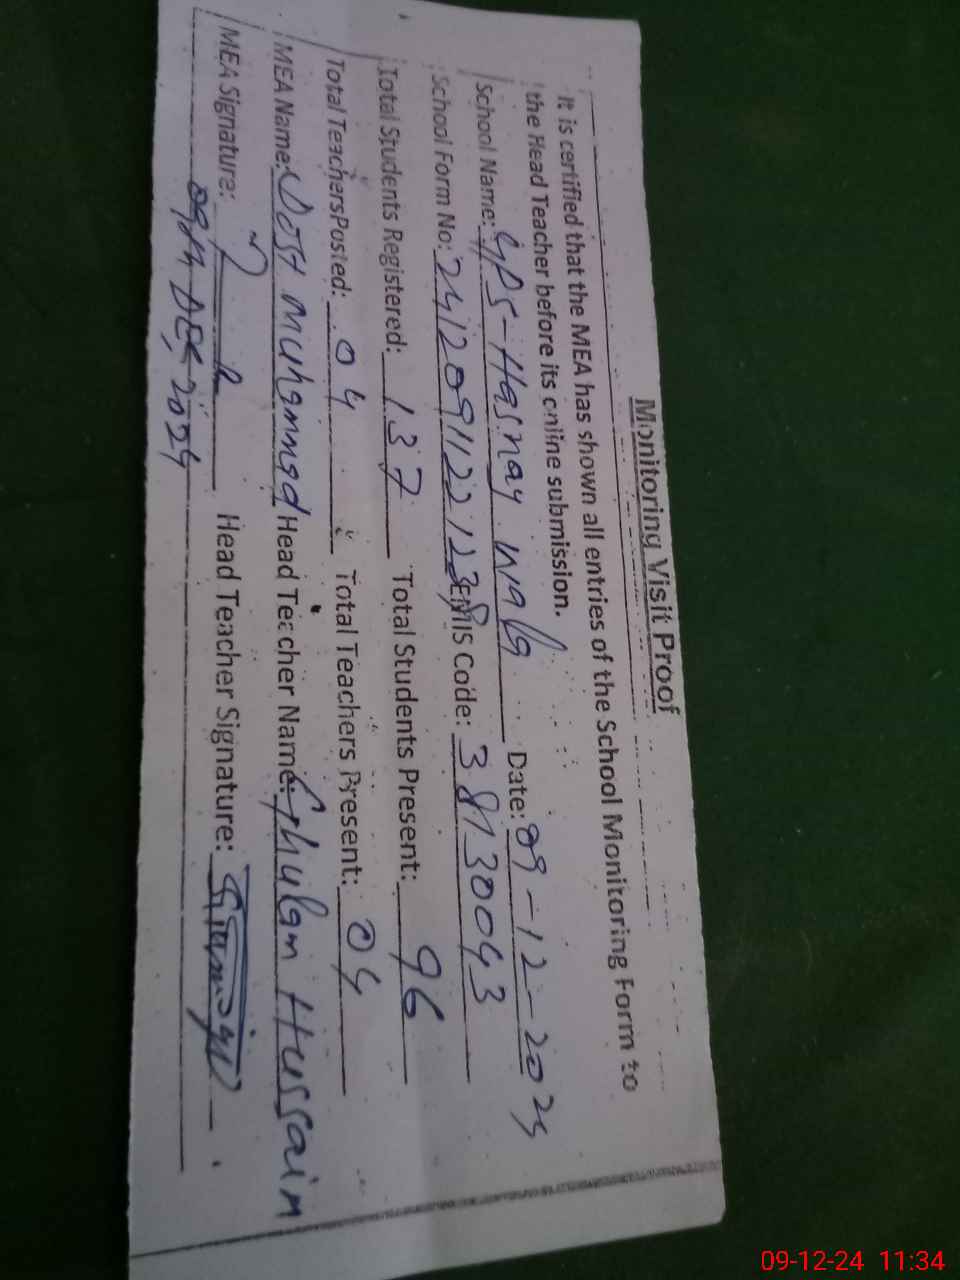 Monitoring Visit Proof
It is certified that the MEA has shown all entries of the School Monitoring Form to
the Head Teacher before its online submission.
School Name: GPS-Hasnay Wala Date: 09-12-2024
School Form No: 241209112212 EMIS Code: 38130043
Total Students Registered: 137 Total Students Present: 96
Total TeachersPosted: 04 Total Teachers Present: 04
MEA Name: Dost Muhammad Head Teacher Name: Ghulam Hussain
MEA Signature: Head Teacher Signature:
09TH DEC, 2024
09-12-24 11:34